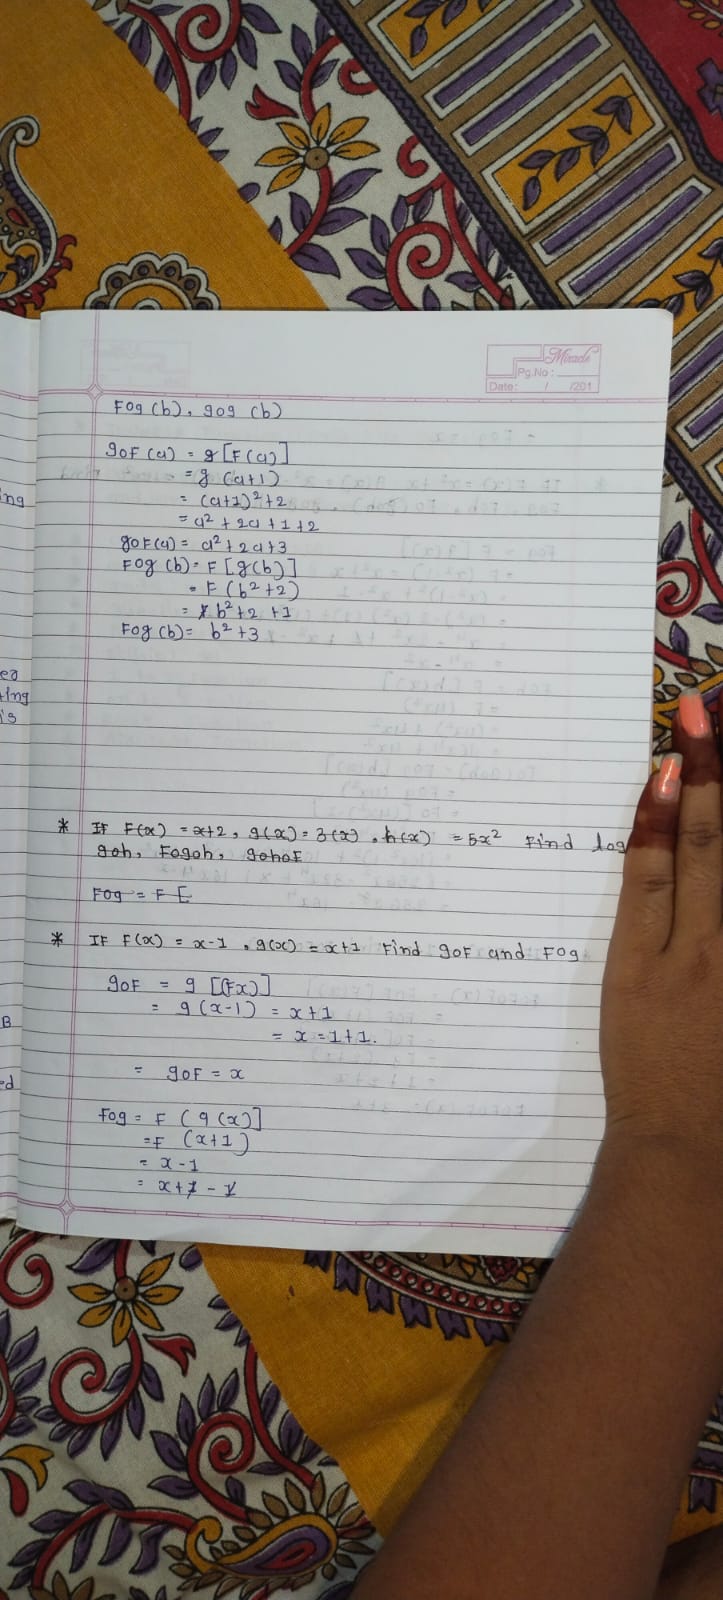 Miracle
Pg.No:
Date: / /201
Fog (b), gog (b)
goF (a) = g [F(a)]
= g (a+1)
= (a+1)² + 2
= a² + 2a + 1 + 2
goF(a) = a² + 2a + 3
Fog (b) = F [g(b)]
= F (b² + 2)
= b² + 2 + 1
Fog (b) = b² + 3
* IF F(x) = x+2, g(x) = 3(x), h(x) = 5x² Find
goh, Fogoh, gohoF
Fog = F [
* IF F(x) = x-1, g(x) = x+1 Find goF and Fog
goF = g [(Fx)]
= g (x-1) = x+1
= x = 1+1.
= goF = x
Fog = F (g(x)]
= F (x+1)
= x-1
= x+1-1
ing
ting
is
B
ed